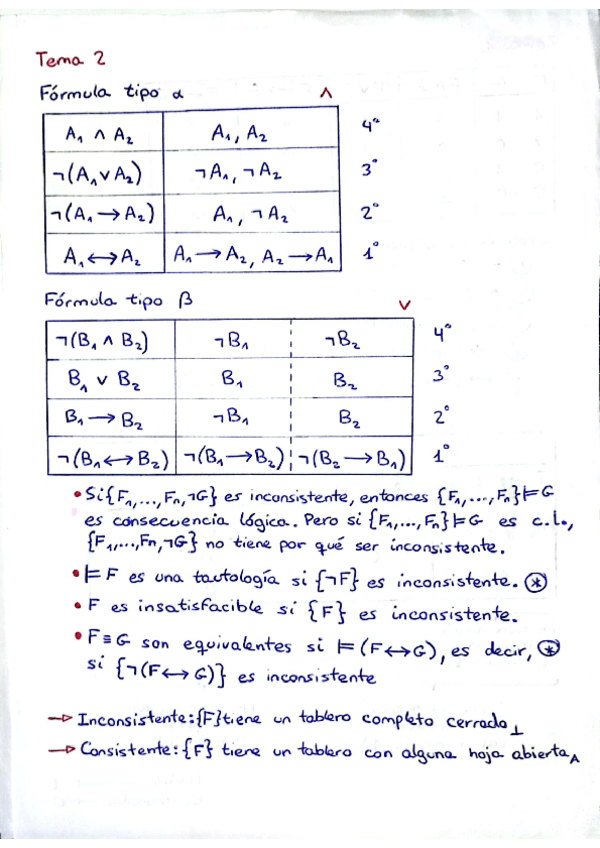 Tema 2
Fórmula tipo α ∧
A₁ ∧ A₂ A₁, A₂ 4°
¬(A₁∨A₂) ¬A₁, ¬A₂ 3°
¬(A₁→A₂) A₁, ¬A₂ 2°
A₁↔A₂ A₁→A₂, A₂→A₁ 1°
Fórmula tipo β ∨
¬(B₁ ∧ B₂) ¬B₁ ¬B₂ 4°
B₁ ∨ B₂ B₁ B₂ 3°
B₁→B₂ ¬B₁ B₂ 2°
¬(B₁↔B₂) ¬(B₁→B₂) ¬(B₂→B₁) 1°
• Si {F₁,...,Fn,¬G} es inconsistente, entonces {F₁,...,Fn}⊨G
es consecuencia lógica. Pero si {F₁,...,Fn}⊨G es c.l.,
{F₁,...,Fn,¬G} no tiene por qué ser inconsistente.
• ⊨F es una tautología si {¬F} es inconsistente. ⊛
• F es insatisfacible si {F} es inconsistente.
• F≡G son equivalentes si ⊨(F↔G), es decir, ⊛
si {¬(F↔G)} es inconsistente
→ Inconsistente: {F} tiene un tablero completo cerrado ⊥
→ Consistente: {F} tiene un tablero con alguna hoja abierta A